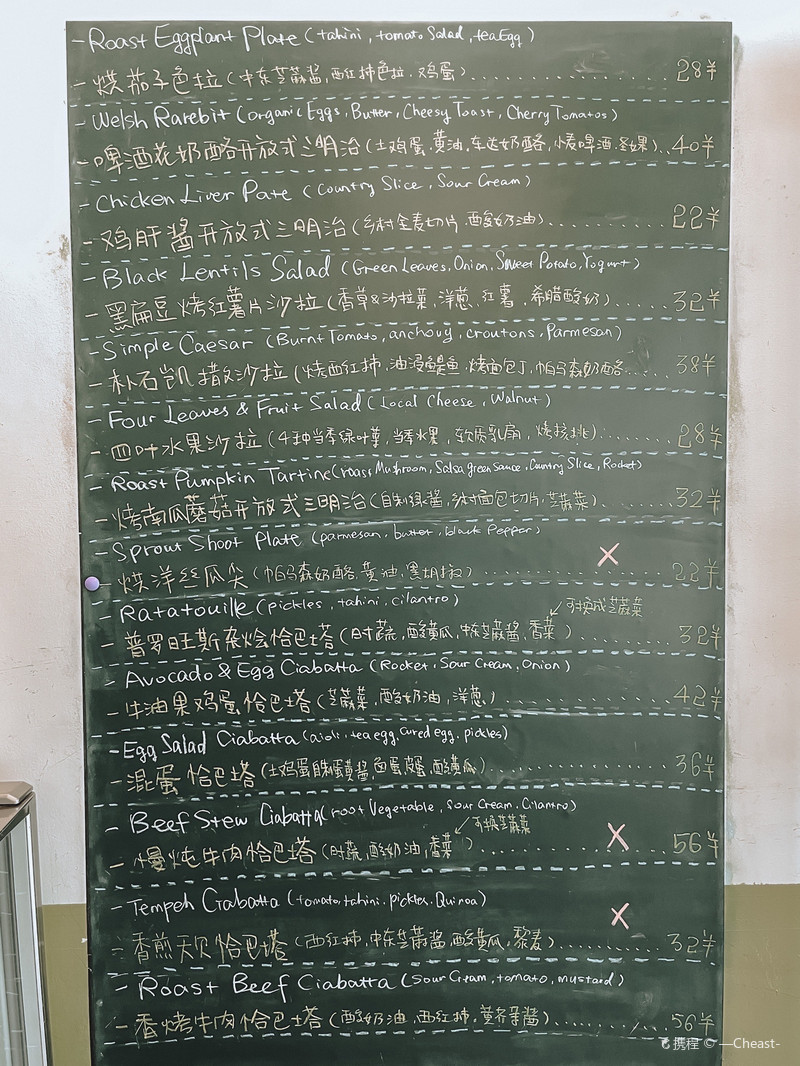 - Roast Eggplant Plate (tahini, tomato Salad, tea Egg)
- 烘茄子色拉 (中东芝麻酱, 西红柿色拉, 鸡蛋) .................... 28¥
- Welsh Rarebit (organic Eggs, Butter, Cheesy Toast, Cherry Tomatos)
- 啤酒花奶酪开放式三明治 (土鸡蛋, 黄油, 车达奶酪, 烤啤酒, 坚果) .. 40¥
- Chicken Liver Pate (Country Slice, Sour Cream)
- 鸡肝酱开放式三明治 (乡村全麦切片, 酸奶油) .............. 22¥
- Black Lentils Salad (Green Leaves, Onion, Sweet Potato, Yogurt)
- 黑扁豆烤红薯片沙拉 (香草&沙拉菜, 洋葱, 红薯, 希腊酸奶) ....... 32¥
- Simple Caesar (Burnt Tomato, anchovy, croutons, Parmesan)
- 朴石凯撒沙拉 (烤西红柿, 油浸鳀鱼, 烤面包丁, 帕马森奶酪 ...... 38¥
- Four Leaves & Fruit Salad (Local Cheese, Walnut)
- 四叶水果沙拉 (4种当季绿叶菜, 当季水果, 软质乳扇, 烧核桃) ........ 28¥
- Roast Pumpkin Tartine (roast Mushroom, Salsa green sauce, Country Slice, Rocket)
- 烤南瓜蘑菇开放式三明治 (自制绿酱, 乡村面包切片, 芝麻菜) .......... 32¥
- Sprout Shoot Plate (parmesan, butter, black Pepper)
- 烘洋丝瓜尖 (帕马森奶酪, 黄油, 黑胡椒) .................... 22¥
- Ratatouille (pickles, tahini, cilantro)
可换成芝麻菜
- 普罗旺斯杂烩恰巴塔 (时蔬, 酸黄瓜, 中东芝麻酱, 香菜) ............ 32¥
- Avocado & Egg Ciabatta (Rocket, Sour Cream, Onion)
- 牛油果鸡蛋恰巴塔 (芝麻菜, 酸奶油, 洋葱) ................ 42¥
- Egg Salad Ciabatta (aioli, tea egg, cured egg, pickles)
- 混蛋恰巴塔 (土鸡蛋自制蛋黄酱, 卤蛋, 皮蛋, 酸黄瓜) .............. 36¥
- Beef Stew Ciabatta (root Vegetable, Sour Cream, Cilantro)
可换芝麻菜
- 慢炖牛肉恰巴塔 (时蔬, 酸奶油, 香菜) .................. 56¥
- Tempeh Ciabatta (tomato, tahini, pickles, Quinoa)
- 香煎天贝恰巴塔 (西红柿, 中东芝麻酱, 酸黄瓜, 藜麦) ............ 32¥
- Roast Beef Ciabatta (Sour Cream, tomato, mustard)
- 香烤牛肉恰巴塔 (酸奶油, 西红柿, 黄芥末酱) ............ 56¥
携程 © —Cheast-